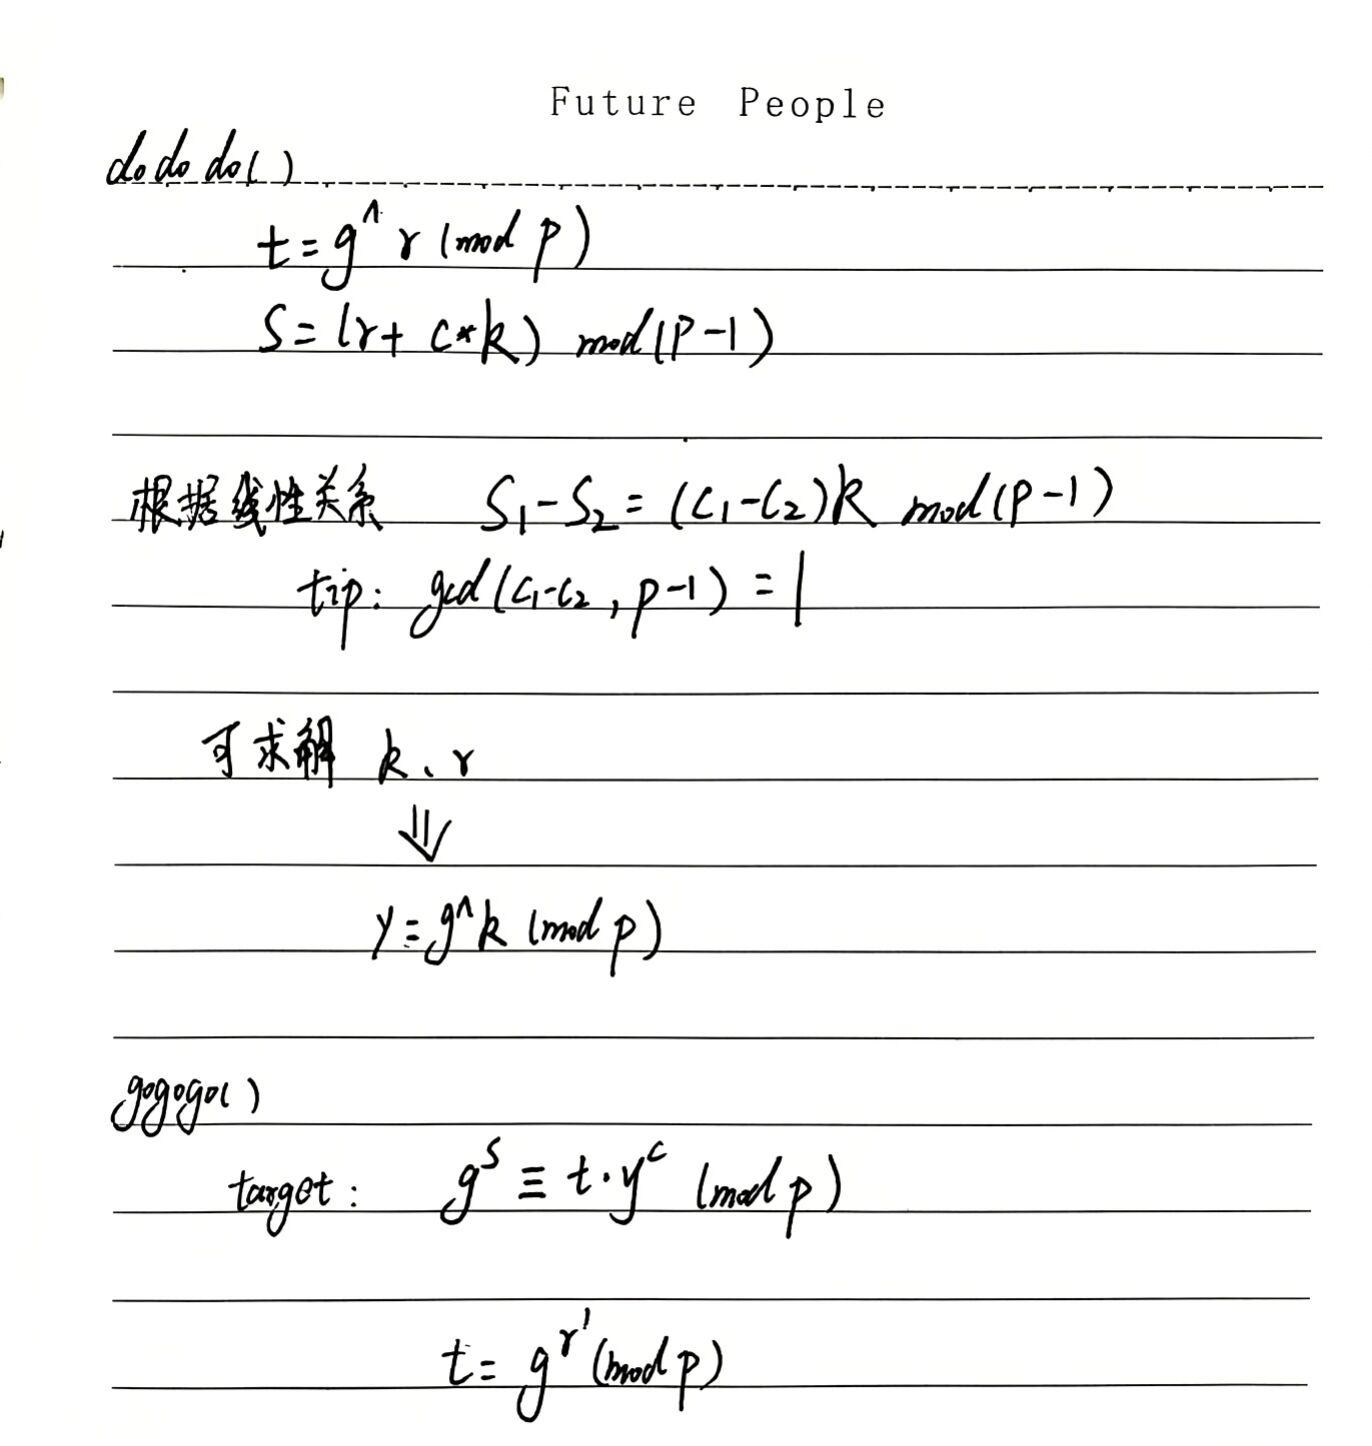 Future People
dododo()
t=g^r (mod p)
S=(r+ c*k) mod(p-1)
根据线性关系 S₁-S₂=(C₁-C₂)k mod(p-1)
tip: gcd(c₁-c₂,p-1)=1
可求解 k、r
⇓
y=g^k (mod p)
gogogo()
target: gˢ≡t·yᶜ (mod p)
t=g^r' (mod p)